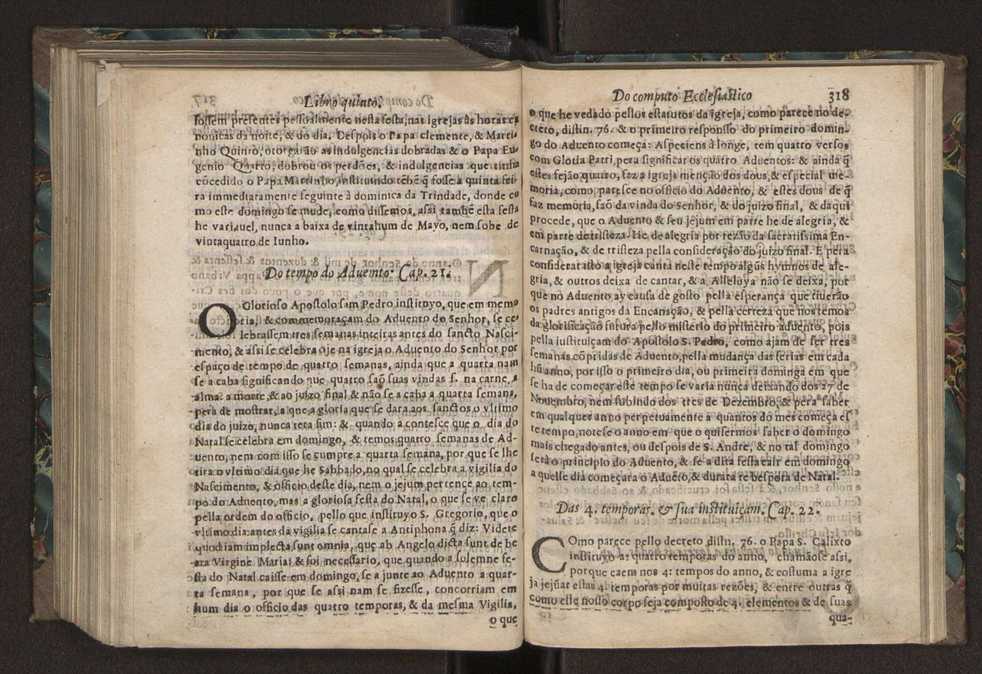 Libro quinto.
fossem presentes pessoalmente nesta festa, nas igrejas às horas ca
nonicas da noite, & do dia. Despois o Papa Clemente, & Marti
nho Quinto, otorgarão as indulgencias dobradas & o Papa Eu
genio Quarto, dobrou os perdões, & indulgencias que tinha
cõcedido o Papa Martinho, instituindo tẽbẽ q̃ fosse a quinta fei
ra immediatamente seguinte à dominica da Trindade, donde co
mo este domingo se mude, como dissemos, assi tambẽ esta festa
he variavel, nunca a baixa de vintahum de Mayo, nem sobe de
vintaquatro de Iunho.
Do tempo do Aduento. Cap. 21.
O Glorioso Apostolo sam Pedro instituyo, que em memo
ria, & commemoraçam do Aduento do Senhor, se ce
lebrassem tres semanas inteiras antes do sancto Nasci-
mento, & assi se celebra oje na igreja o Aduento do Senhor por
espaço de tempo de quatro semanas, ainda que a quarta nam
se acaba significando que quatro saõ suas vindas s. na carne, a
alma: a morte, & ao juizo final & não se acaba a quarta semana,
pera de mostrar, a que a gloria que se dara aos sanctos o vltimo
dia do juizo, nunca tera fim: & quando acontesce que o dia do
Natal se celebra em domingo, & temos quatro semanas de Ad-
uento, nem com isso se cumpre a quarta semana, por que se lhe
tira o vltimo dia que he Sabbado, no qual se celebra a vigilia do
Nascimento, & officio deste dia, nem o jejum pertence ao tem-
po do Aduento, mas a gloriosa festa do Natal, o que se ve claro
pella ordem do officio, pello que instituyo S. Gregorio, que o
vltimo dia antes da vigilia se cantase a Antiphona q̃ diz: Videte
quod iam implecta sunt omnia, quæ ab Angelo dicta sunt de be
ata Virgine Maria: & foi necessario, que quando a solemne fe-
sta do Natal caisse em domingo, se ajunte ao Aduento a quar-
ta semana, por que se assi nam se fizesse, concorriam em
hum dia o officio das quatro temporas, & da mesma Vigilia,
o que
Do computo Ecclesiastico 318
o que he vedado pellos estatutos da igreja, como parece no de-
creto, distin. 76. & o primeiro responsso do primeiro domin-
go do Aduento começa: Aspeciens à longe, tem quatro versos
com Gloria Patri, pera significar os quatro Aduentos: & ainda q̃
estes sejão quatro, faz a igreja menção dos dous, & especial me-
moria, como paresce no officio do Aduento, & estes dous de q̃
faz memoria, saõ da vinda do Senhor, & do juizo final, & daqui
procede, que o Aduento & seu jejum em parte he de alegria, &
em parte de tristeza. He de alegria por rezão da sacratissima En-
carnação, & de tristeza pella consideração do juizo final. E pera
considerar isto a igreja canta neste tempo algũs hymnos de ale-
gria, & outros deixa de cantar, & a Alleloya não se deixa, por
que no Aduento ay causa de gosto pella esperança que tiuerão
os padres antigos da Encarnação, & pella certeza que nos temos
da glorificação futura pello misterio do primeiro aduento, pois
pella instituiçam do Apostolo S. Pedro, como ajam de ser tres
semanas cõpridas de Aduento, pella mudança das ferias em cada
hũ anno, por isso o primeiro dia, ou primeira dominga em que
se ha de começar este tempo se varia nunca deixando dos 27 de
Nouembro, nem subindo dos tres de Dezembro, & pera saber
em qualquer anno perpetuamente a quantos do mes começa es
te tempo, notese o anno em que o quisermos saber o domingo
mais chegado antes, ou despois de S. Andre, & no tal domingo
sera o principio do Aduento, & se a dita festa cair em domingo
aquelle dia começara o Aduẽto, & durara te bespora de Natal.
Das 4. temporas. & sua instituiçam. Cap. 22.
COmo parece pello decreto distin. 76. o Papa S. Calixto
instituyo as quatro temporas do anno, chamãose assi,
porque caem nos 4: tempos do anno, & costuma a igre
ja jejũar estas 4. temporas por muitas rezões, & entre outras q̃
como este nosso corpo seja composto de 4. elementos & de suas
qua-